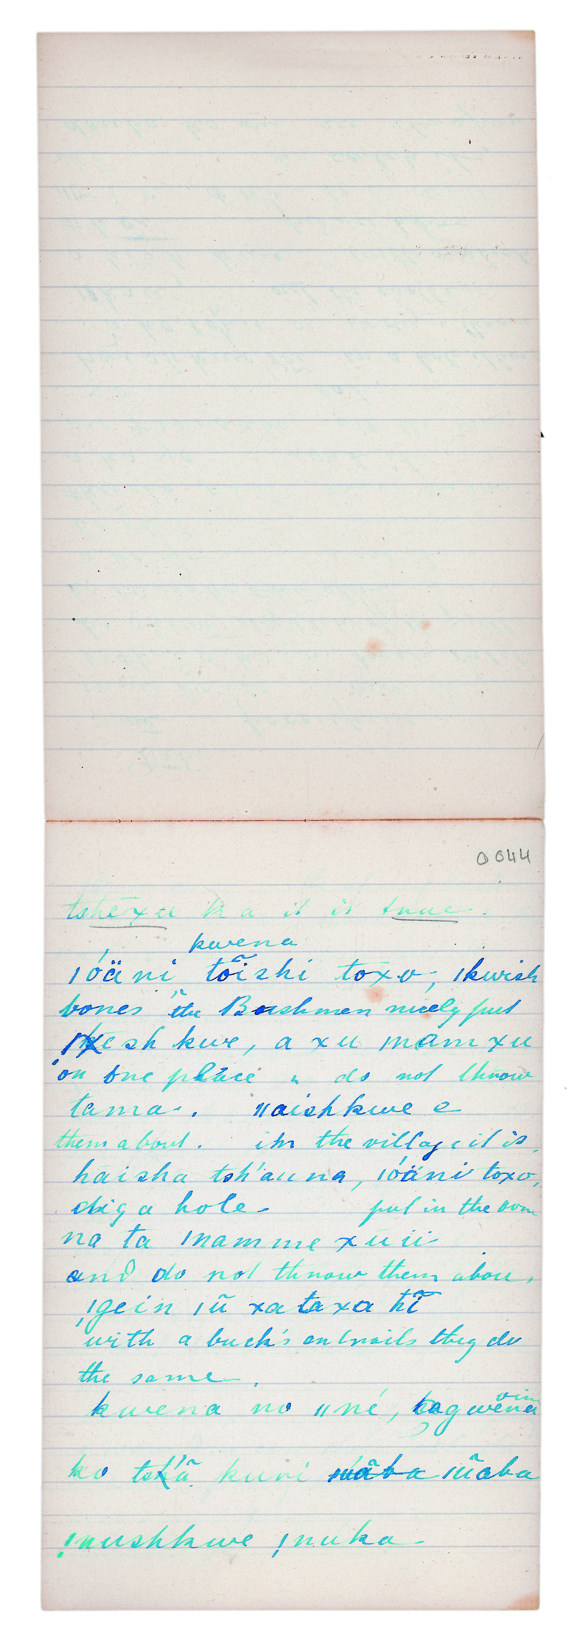 0044
tshēxu ka it is true.
kwena
ıóäni tõĩshi toxo, ıkwish
bones the Bushmen nicely put
kwe, a xu ınamxu
on one place " do not throw
tama. ııaishkwe e
them about. in the village it is,
haisha tsh'auna, ıóäni toxo,
dig a hole put in the
na ta ınamme xu ii
and do not throw them abou,
ıgein ıũ xa taxa hĩ
with a buck's entrails they do
the same.
kwena no ııné,
ko kuri ıũaba
!nushkwe ınuka